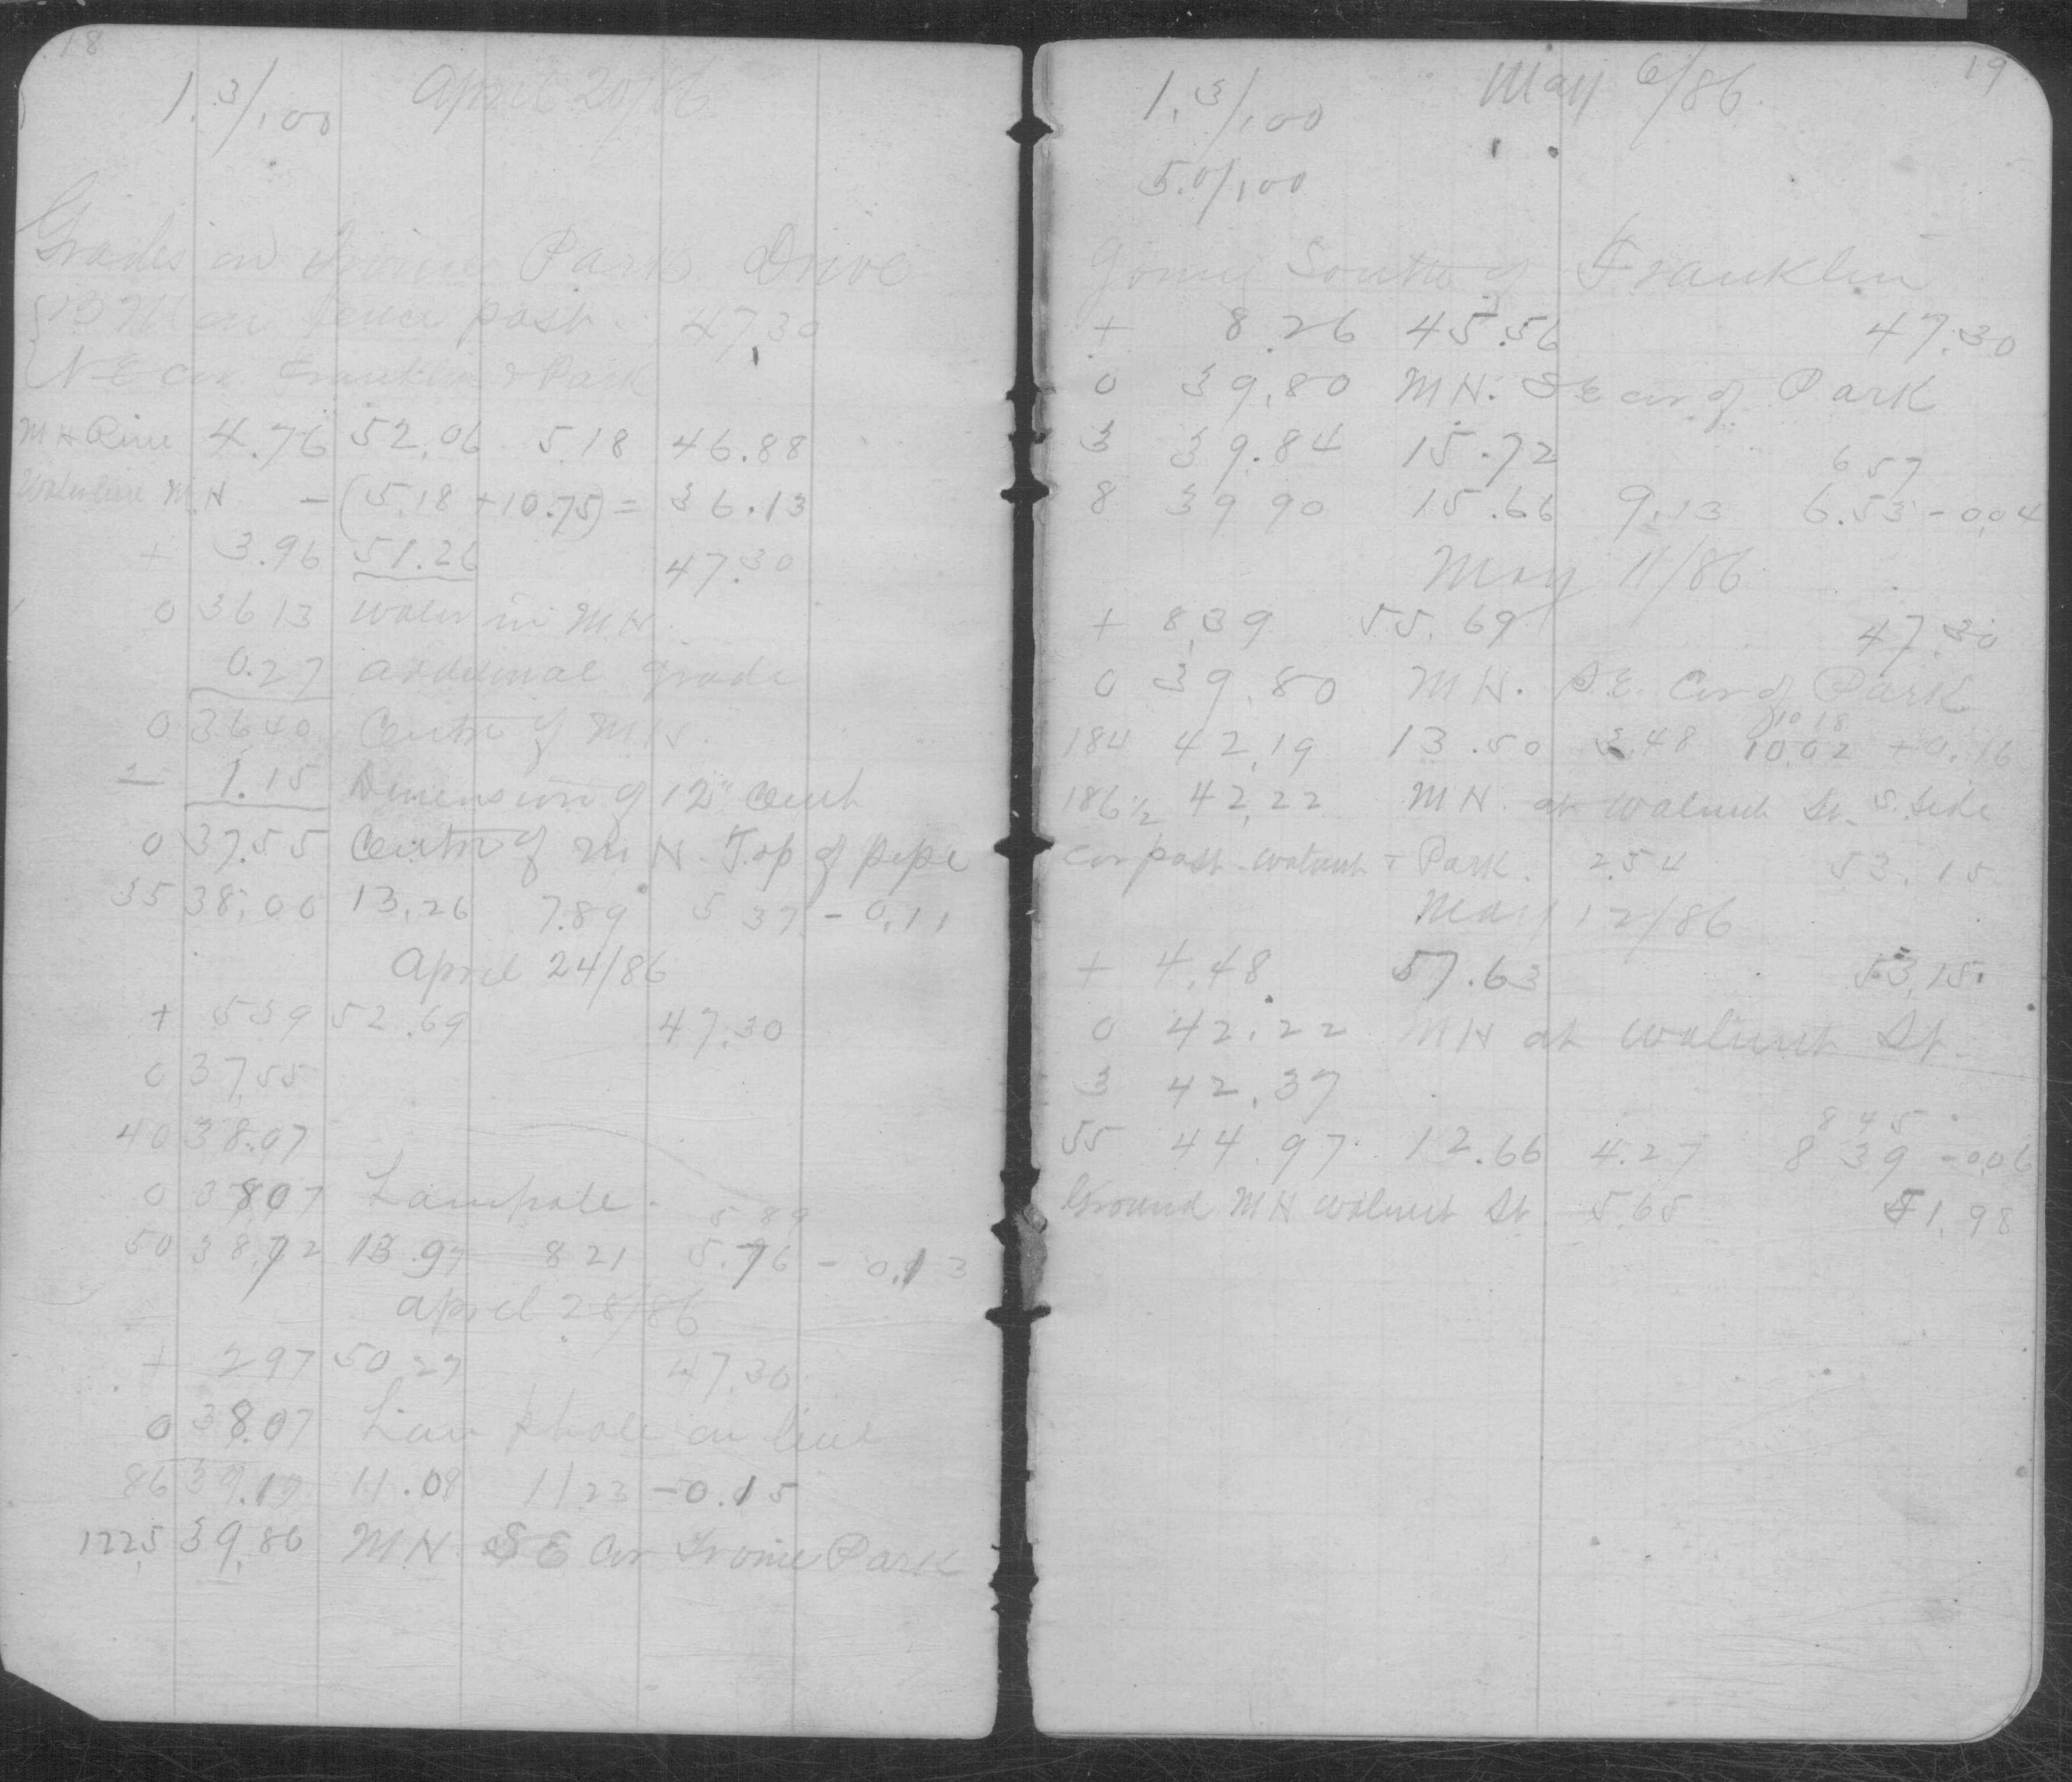 18
April 20/86
1.3/100
Grades on Irvine Park Drive
BM on fence post 47.30
N-E cor. Franklin & Park
MH Rim 4.76 52.06 5.18 46.88
Waterline M.H - (5.18 + 10.75) = 36.13
+ 3.96 51.26 47.30
0 36 13 water in M.H.
0.27 additional grade
0 36 40 Centre of M.H.
1.15 Dimension of 12"
0 37.55 Centre of M H - Top of pipe
35 38.00 13.26 7.89 5 37 - 0.11
April 24/86
+ 5 39 52.69 47.30
0 37.55
40 38.07
0 3807 Lamphole.
5 89
50 38.72 13.97 8 21 5.76 - 0.13
April 28/86
+ 2 97 50 27 47.30
0 38.07 Lamphole on line
86 39.19 11.08 11 23 - 0.15
122.5 39.86 M H. S E Cor Irvine Park
19
May 6/86
1.3/100
5.0/100
Going South of Franklin
+ 8.26 45.56 47.30
0 39.80 M H. S E cor of Park
3 39.84 15.72
6 57
8 39 90 15.66 9.13 6.53 - 0.04
May 11/86
+ 8.39 55.69 47.30
0 39.80 M H. S.E. Cor of Park
10 18
184 42.19 13.50 3.48 10.02 + 0.16
186 1/2 42.22 M H. at Walnut St. S. Side
Cor post - Walnut + Park. 2.54 53.15
May 12/86
+ 4.48 57.63 53.15
0 42.22 M H at Walnut St.
3 42.37
8 45
55 44.97 12.66 4.27 8 39 - 0.06
Ground M H Walnut St 5.65 51.98